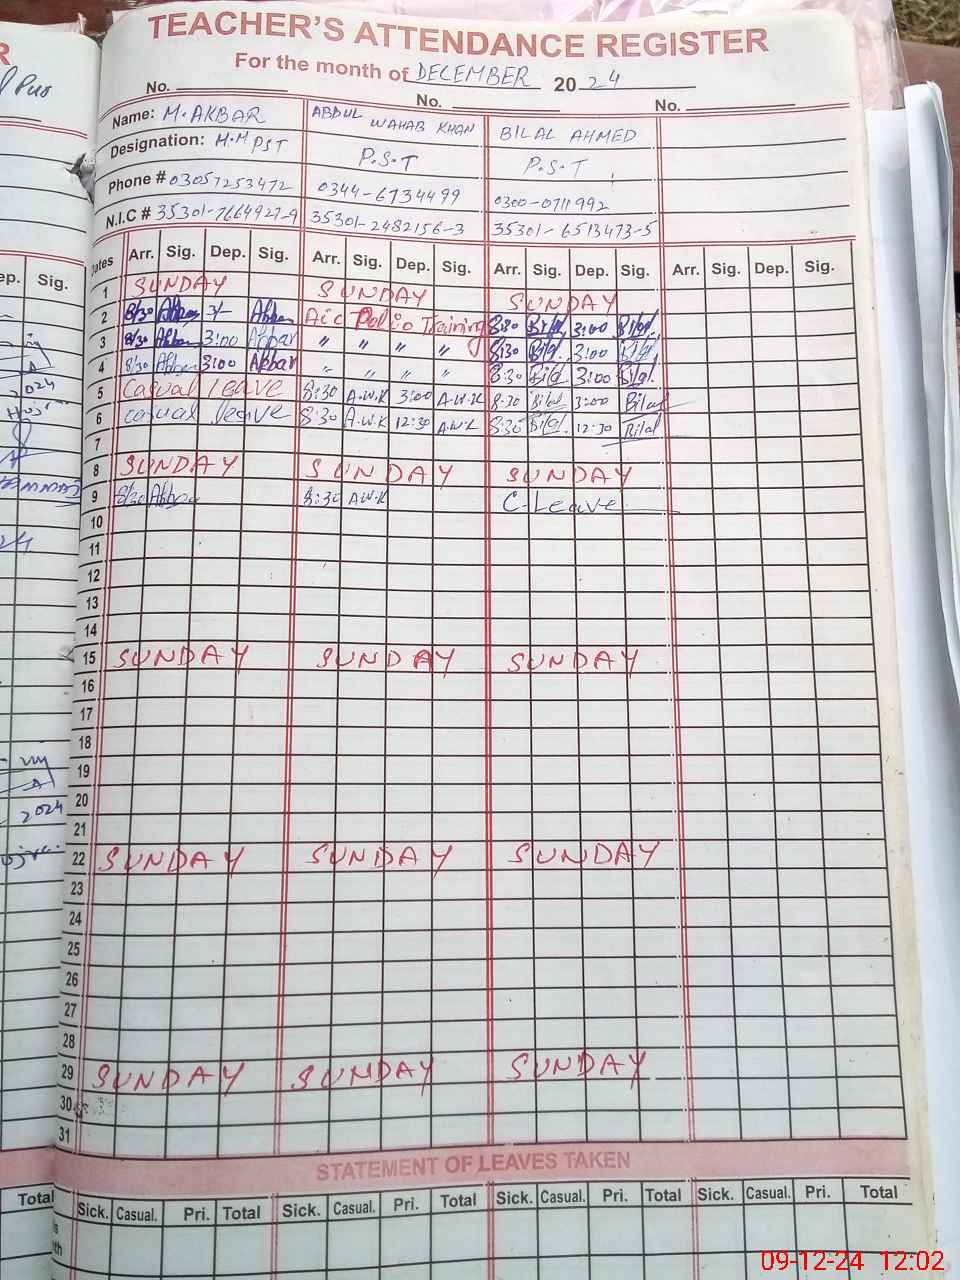 TEACHER'S ATTENDANCE REGISTER
For the month of DECEMBER 2024
No. No. No.
Name: M. AKBAR ABDUL WAHAB KHAN BILAL AHMED
Designation: H.M PST P.S.T P.S.T
Phone # 03057253472 0344-6734499 0300-0711992
N.I.C # 35301-7664927-9 35301-2482156-3 35301-6513473-5
Dates Arr. Sig. Dep. Sig. Arr. Sig. Dep. Sig. Arr. Sig. Dep. Sig. Arr. Sig. Dep. Sig.
1 SUNDAY SUNDAY SUNDAY
2 8/30 Akbar 3/- Akbar Aic Polio Training 8:30 Bilal 3:00 Bilal
3 8/30 Akbar 3:00 Akbar " " " " 8:30 Bilal 3:00 Bilal
4 8/30 Akbar 3:00 Akbar " " " " 8:30 Bilal 3:00 Bilal
5 Casual leave 8:30 A.W.K 3:00 A.W.K 8:30 Bilal 3:00 Bilal
6 casual leave 8:30 A.W.K 12:30 A.W.K 8:30 Bilal 12:30 Bilal
7
8 SUNDAY SUNDAY SUNDAY
9 8/30 Akbar 8:30 A.W.K C-Leave
10
11
12
13
14
15 SUNDAY SUNDAY SUNDAY
16
17
18
19
20
21
22 SUNDAY SUNDAY SUNDAY
23
24
25
26
27
28
29 SUNDAY SUNDAY SUNDAY
30
31
STATEMENT OF LEAVES TAKEN
Total Sick. Casual. Pri. Total Sick. Casual. Pri. Total Sick. Casual. Pri. Total Sick. Casual. Pri. Total
09-12-24 12:02